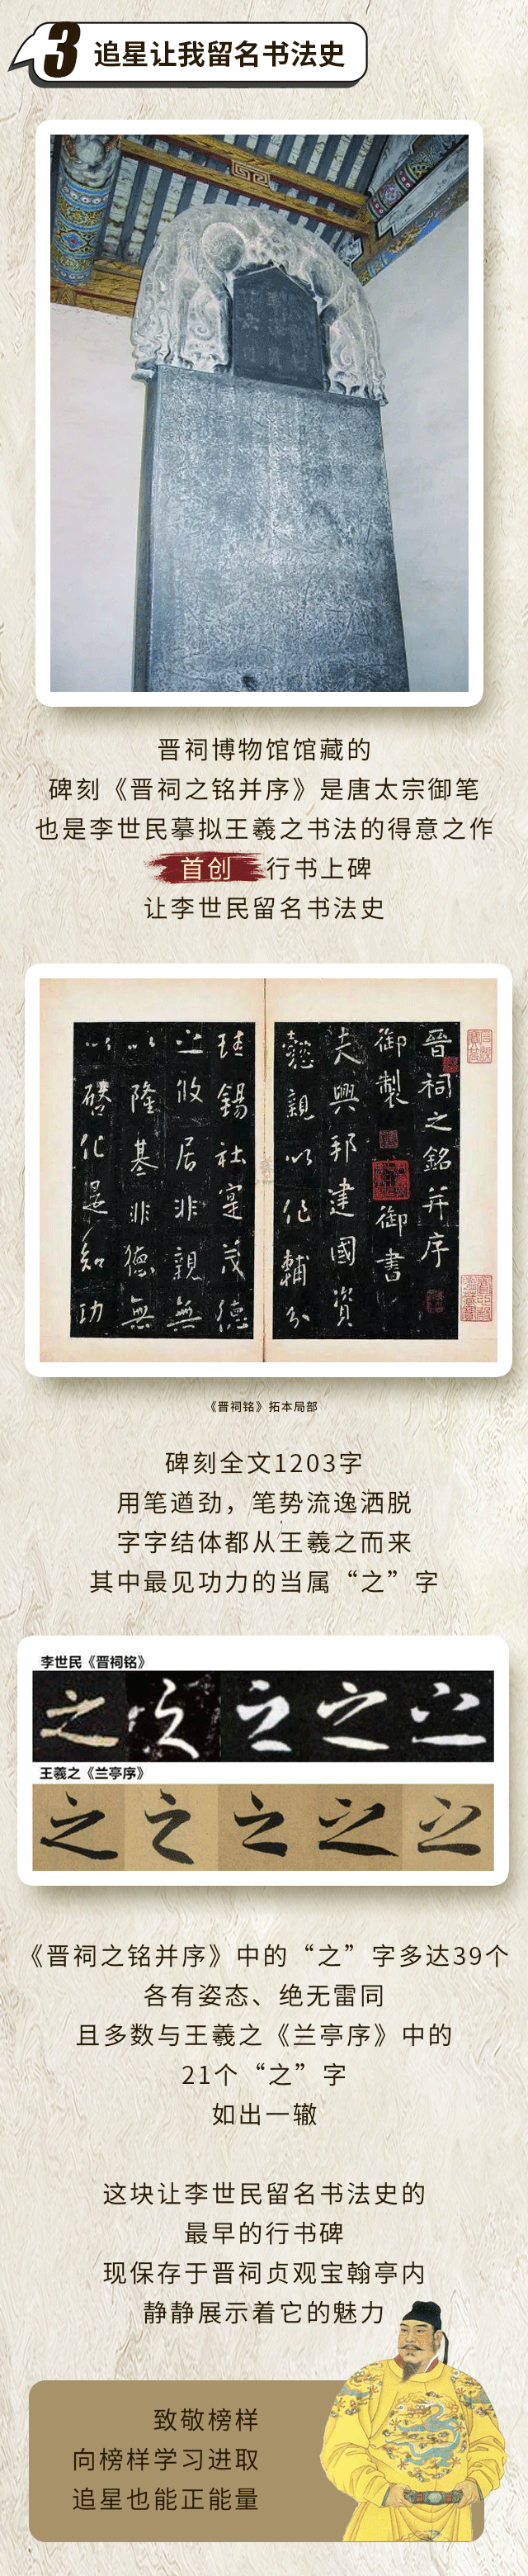 3 追星让我留名书法史
晋祠博物馆馆藏的
碑刻《晋祠之铭并序》是唐太宗御笔
也是李世民摹拟王羲之书法的得意之作
首创 行书上碑
让李世民留名书法史
晉祠之銘并序
御製 御書
夫興邦建國資
懿親以作輔分
珪錫社寔茂德
之攸居非親無
以隆基非德無
以啓化是知功
《晋祠铭》拓本局部
碑刻全文1203字
用笔遒劲，笔势流逸洒脱
字字结体都从王羲之而来
其中最见功力的当属“之”字
李世民《晋祠铭》
之 之 之 之 之
王羲之《兰亭序》
之 之 之 之 之
《晋祠之铭并序》中的“之”字多达39个
各有姿态、绝无雷同
且多数与王羲之《兰亭序》中的
21个“之”字
如出一辙
这块让李世民留名书法史的
最早的行书碑
现保存于晋祠贞观宝翰亭内
静静展示着它的魅力
致敬榜样
向榜样学习进取
追星也能正能量